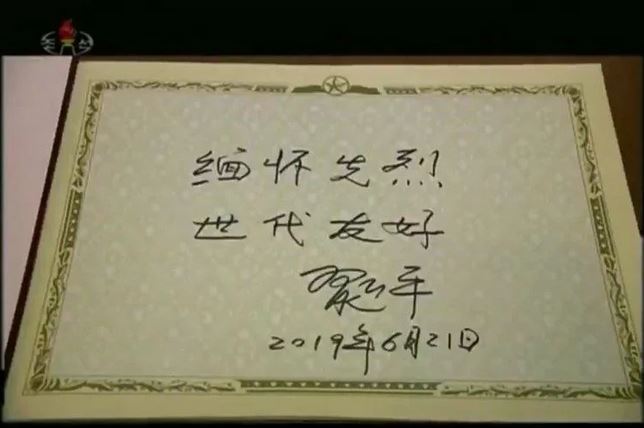 조선
缅怀先烈
世代友好
习近平
2019年6月21日